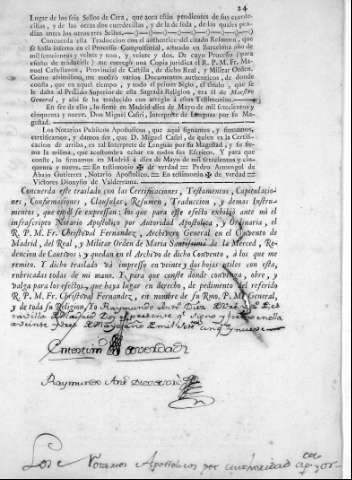 24
Lugar de los seis Sellos de Cera, que aora estàn pendientes de sus cuerde-
cillas, y de las otras dos cuerdecillas, y de la de seda, de los quales pen-
dian antes los otros tres Sellos.
Concuerda esta Traduccion con el authentico del citado Resumen, que
se halla inserto en el Processo Compulsorial, actuado en Barcelona año de
mil seiscientos y veinte y uno, y veinte y dos. De cuyo Processo (para
efecto de traducirle) me entregò una Copia juridica el R. P. M. Fr.
Manuel Cavalcanos, Provincial de Castilla, de dicho Real, y Militar Orden.
Como assimismo, me mostrò varios Documentos authenticos, de donde
consta, que en aquel tiempo, y todo el primer Siglo, el titulo, que se
le daba al Prelado Superior de esta Sagrada Religion, era el de Maestro
General, y assi se ha traducido con arreglo à essos Testimonios.
En fee de esto, lo firmè en Madrid à diez de Mayo de mil setecientos y
cinquenta y nueve. Don Miguel Casiri, Interprete de Lenguas por su Ma-
gestad.
Los Notarios Publicos Apostolicos, que aqui signamos, y firmamos,
certificamos, y damos fee, que D. Miguel Casiri, de quien es la Certifi-
cacion de arriba, es tal Interprete de Lenguas por su Magestad, y su fir-
ma la misma, que acostumbra echar en todos sus Escritos. Y para que
conste, lo firmamos en Madrid à diez de Mayo de mil setecientos y cin-
quenta y nueve. = En testimonio ✠ de verdad = Pedro Amcengol de
Abain Gutierrez, Notario Apostolico. = En testimonio ✠ de verdad =
Victores Dionysio de Valderrama.
Concuerda este traslado con las Certificaciones, Testamentos, Capitulacio-
nes, Confirmaciones, Clausulas, Resumen, Traduccion, y demas Instru-
mentos, que en èl se expressan: los que para este efecto exhibiò ante mi el
infrascripto Notario Apostolico por Autoridad Apostolica, y Ordinaria, el
R. P. M. Fr. Christoval Fernandez, Archivero General en el Convento de
Madrid, del Real, y Militar Orden de Maria Santissima de la Merced, Re-
dencion de Cautivos; y quedan en el Archivo de dicho Convento, à los que me
remito. Y dicho traslado và impresso en veinte y dos hojas utiles con esta,
rubricadas todas de mi mano. Y para que conste donde convenga, obre, y
valga para los efectos, que haya lugar en derecho, de pedimento del referido
R. P. M. Fr. Christoval Fernandez, en nombre de su Rmo. P. M. General,
y de toda su Religion, Yo Raymundo Ant.
en esta
Villa de Madrid Doy el presente q. signo y firmo en ella
à veinte y tres de Mayo año de mil setz.os cinq.ta y nueve
En testim.o de verdad
Raymundo Ant.o
Los Notarios Apostolicos por authoridad app.ca y or-